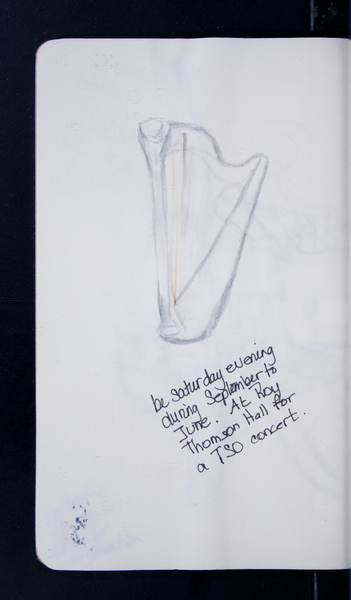 be saturday evening
during September to
June. At Roy
Thomson Hall for
a TSO concert.